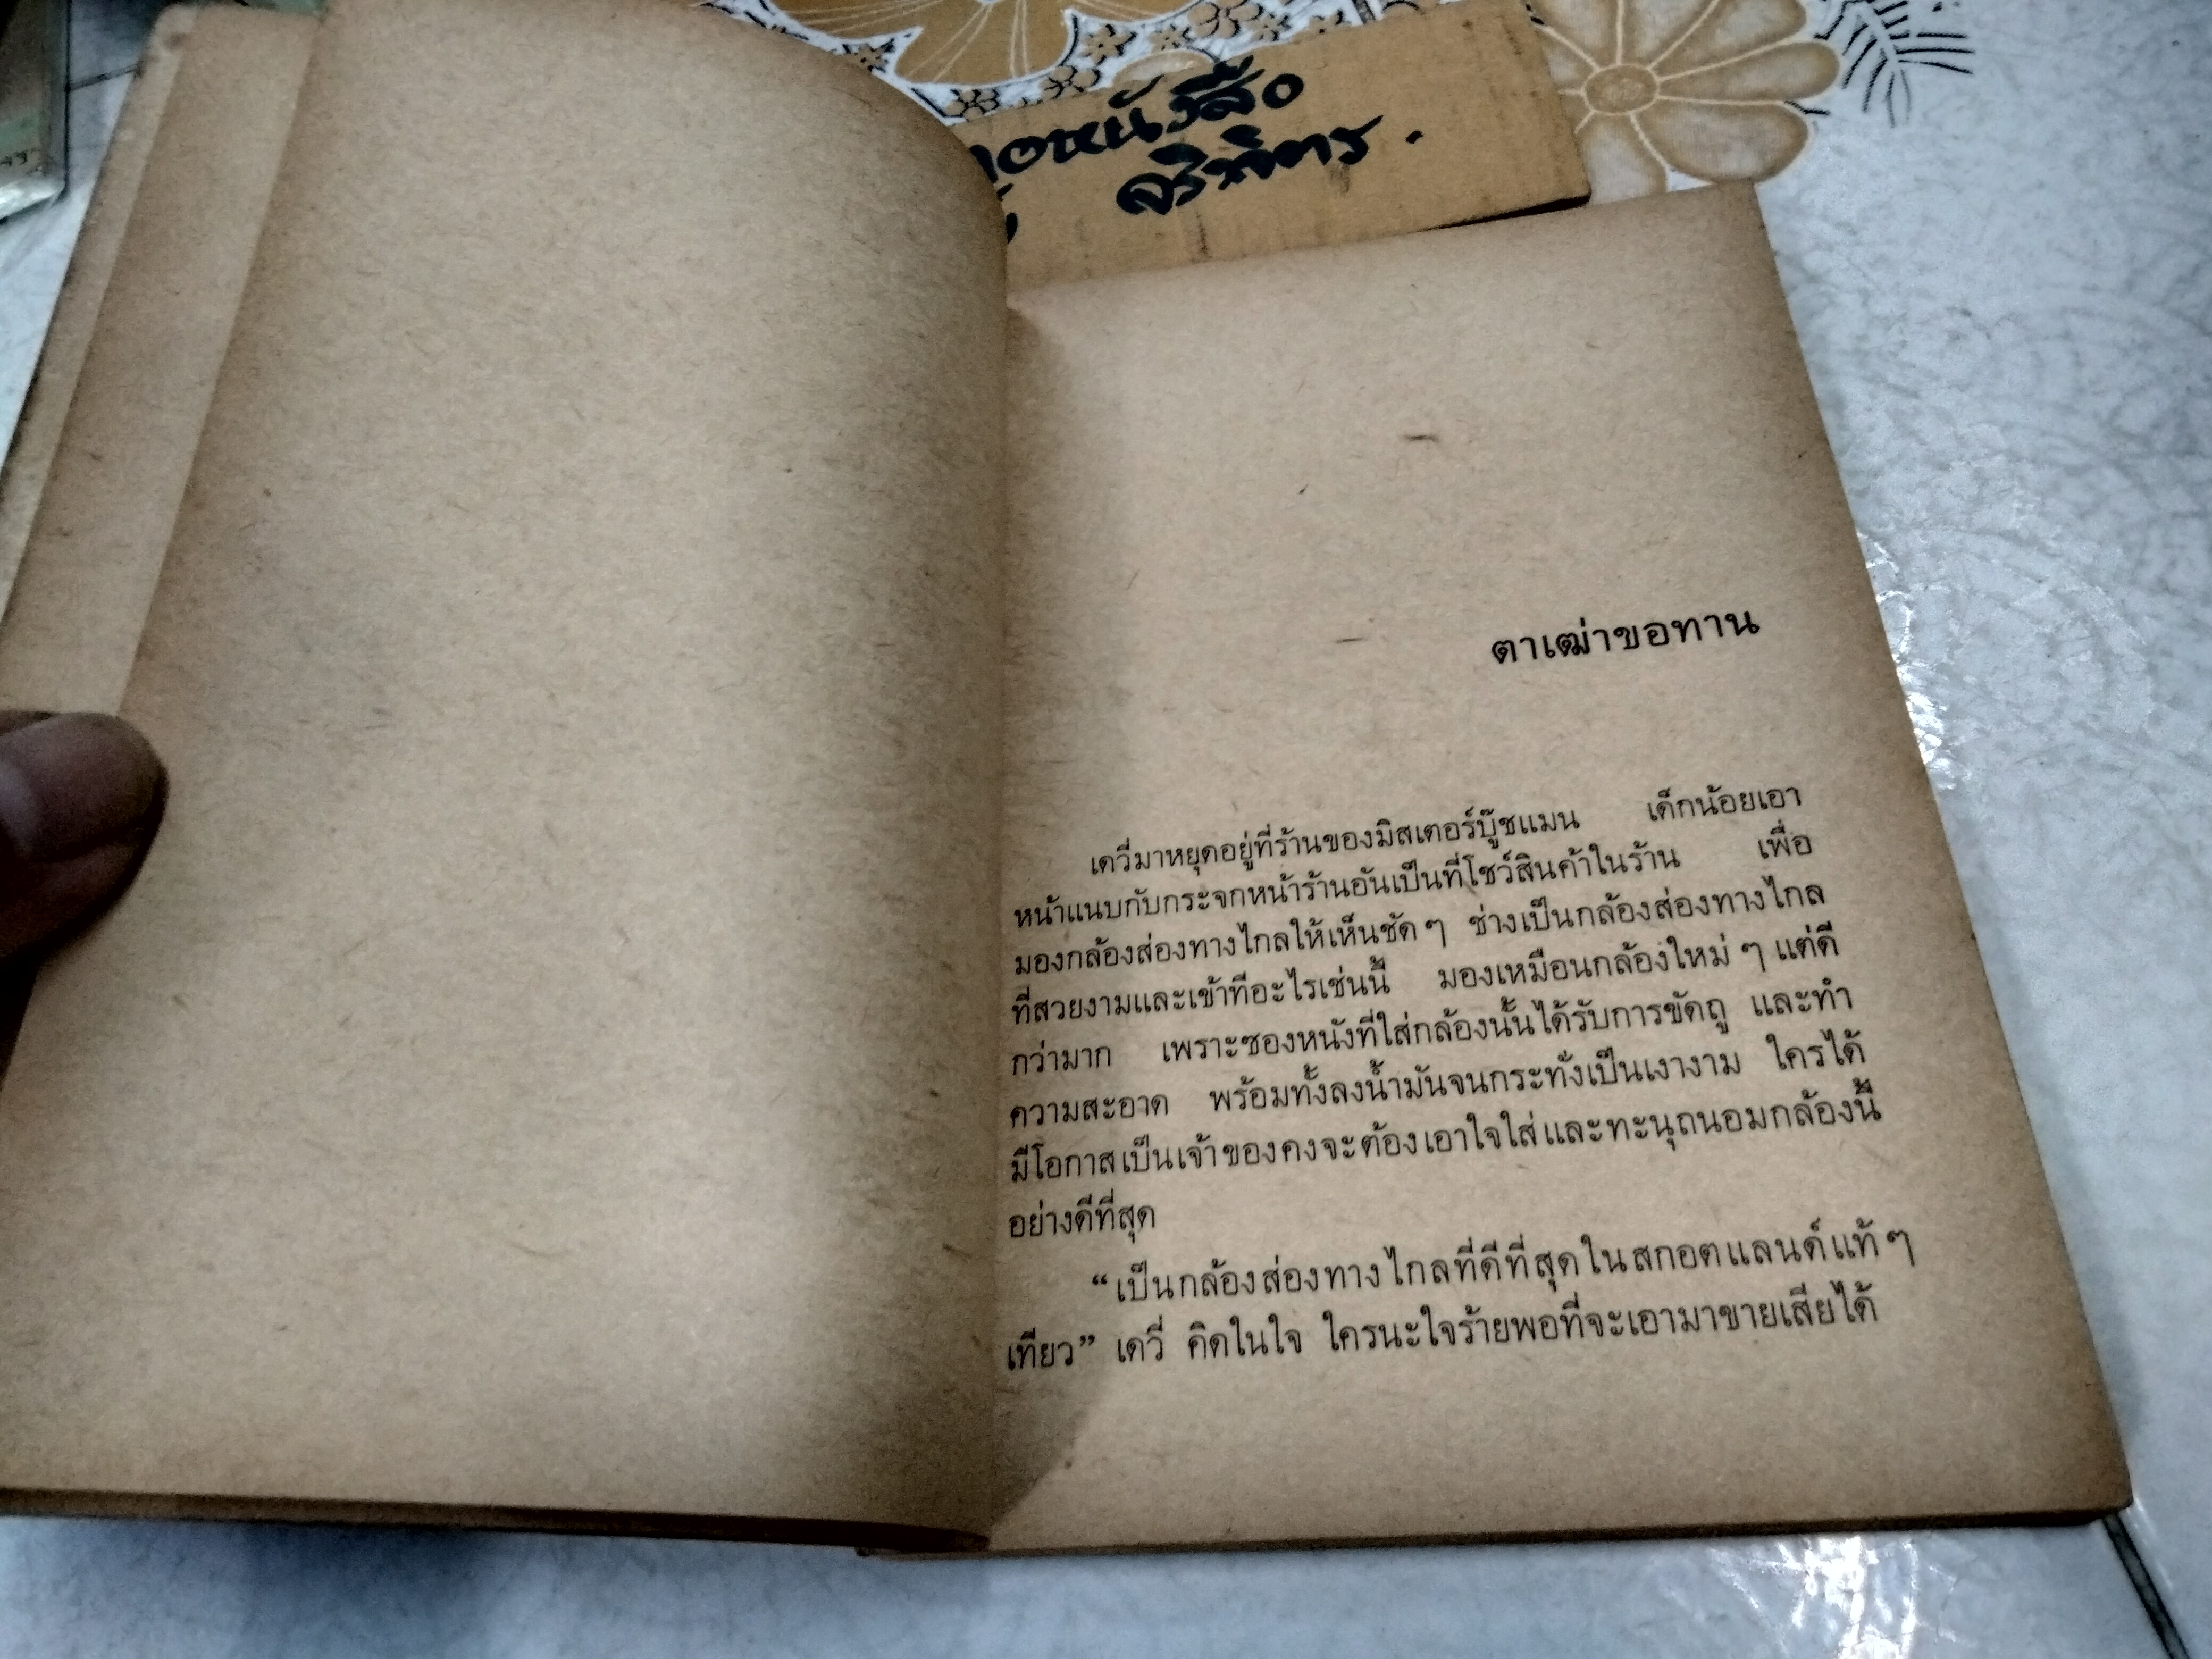 หนังสือ
ตาเฒ่าขอทาน
เดวี่มาหยุดอยู่ที่ร้านของมิสเตอร์บุ๊ชแมน เด็กน้อยเอา
หน้าแนบกับกระจกหน้าร้านอันเป็นที่โชว์สินค้าในร้าน เพื่อ
มองกล้องส่องทางไกลให้เห็นชัด ๆ ช่างเป็นกล้องส่องทางไกล
ที่สวยงามและเข้าทีอะไรเช่นนี้ มองเหมือนกล้องใหม่ ๆ แต่ดี
กว่ามาก เพราะซองหนังที่ใส่กล้องนั้นได้รับการขัดถู และทำ
ความสะอาด พร้อมทั้งลงน้ำมันจนกระทั่งเป็นเงางาม ใครได้
มีโอกาสเป็นเจ้าของคงจะต้องเอาใจใส่และทะนุถนอมกล้องนี้
อย่างดีที่สุด
“เป็นกล้องส่องทางไกลที่ดีที่สุดในสกอตแลนด์แท้ ๆ
เทียว” เดวี่ คิดในใจ ใครนะใจร้ายพอที่จะเอามาขายเสียได้